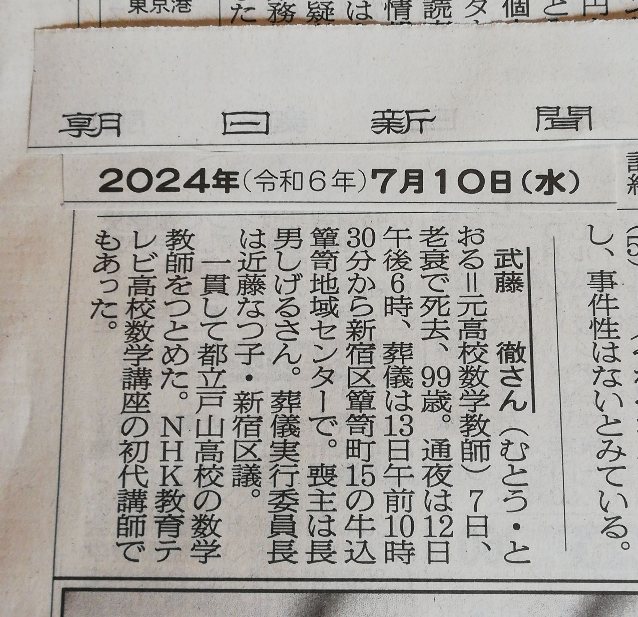 東京港
朝日新聞
2024年(令和6年)7月10日(水)
し、事件性はないとみている。
武藤 徹さん(むとう・と
おる=元高校数学教師)7日、
老衰で死去、99歳。通夜は12日
午後6時、葬儀は13日午前10時
30分から新宿区簞笥町15の牛込
簞笥地域センターで。喪主は長
男しげるさん。葬儀実行委員長
は近藤なつ子・新宿区議。
一貫して都立戸山高校の数学
教師をつとめた。NHK教育テ
レビ高校数学講座の初代講師で
もあった。